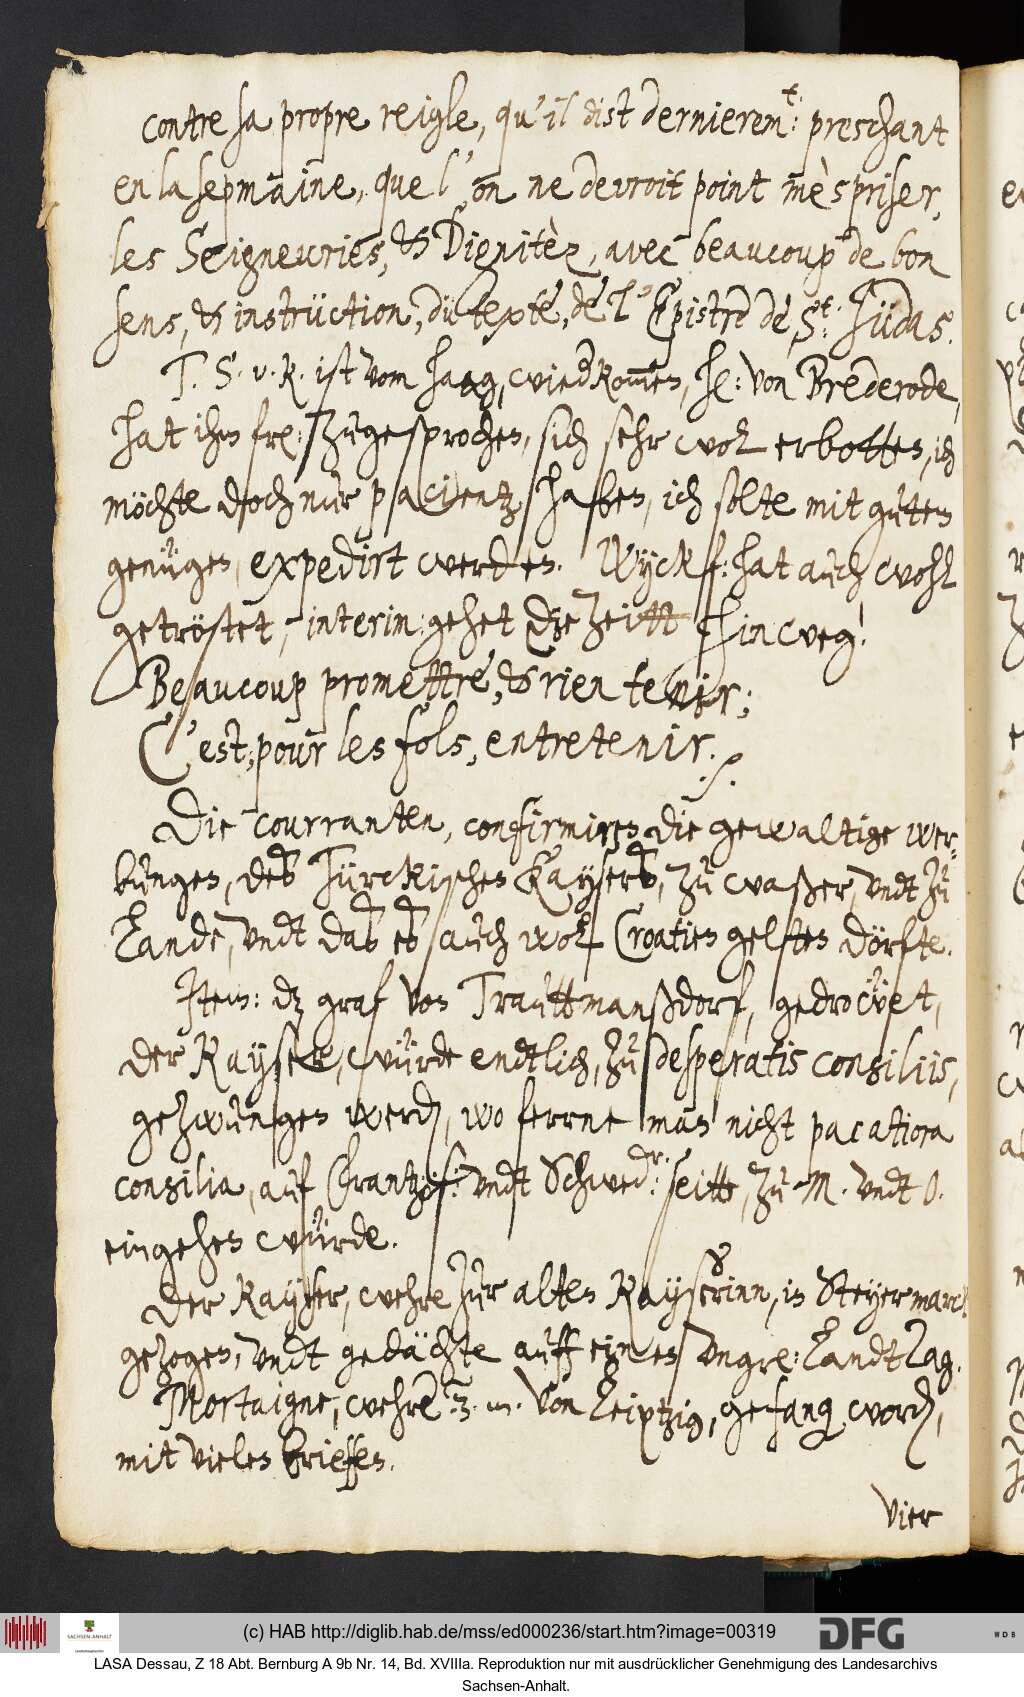 contre sa propre reigle, qu'il dist dernierem:t preschant
en la sepmaine, que l'on ne devroit point mèspriser,
les Seigneuries, & Dignitèz, avec beaucoup de bon
sens, & instrüction, dü texte, de l'Epistre de St: Jüdas.
T. S. v. K. ist vom Haag, wiedkommen, H: von Brederode,
hat ihm frey: zugesprochen, sich sehr wol erbotten, ich
möchte doch nur pacientz haben, ich solte mit guten
genügen, expedirt werden. Wyckf: hat auch wohl
getröstet, interim gehet die Zeitt hinweg!
Beaucoup promettre, & rien tenir;
C'est, pour les fols, entretenir. /.
Die courranten, confirmiren die gewaltige wer-
bungen, deß Türckischen Kaysers, zu waßer, undt zu
Lande, undt daß eß auch wol Croatien gelften dörfte.
Item: dz graf von Trauttmanßdorf, gedrowet,
der Kayser, würde endtlich, zu desperatis consiliis,
gezwungen werden, wo ferrne man nicht pacatiora
consilia, auf Frantzös: undt Schwed:er seitt, zu M. undt O.
eingehen würde.
Der Kayser, wehre zur alten Kayserinn, in Steyermarck
gezogen, undt gedächte auff einen Ungr: Landt Tag.
Mortaigne, wehre 3. m. von Leiptzig, gefang worden,
mit vielen brieffen.
vier
(c) HAB http://diglib.hab.de/mss/ed000236/start.htm?image=00319
SACHSEN-ANHALT
DFG
WDB
LASA Dessau, Z 18 Abt. Bernburg A 9b Nr. 14, Bd. XVIIIa. Reproduktion nur mit ausdrücklicher Genehmigung des Landesarchivs
Sachsen-Anhalt.